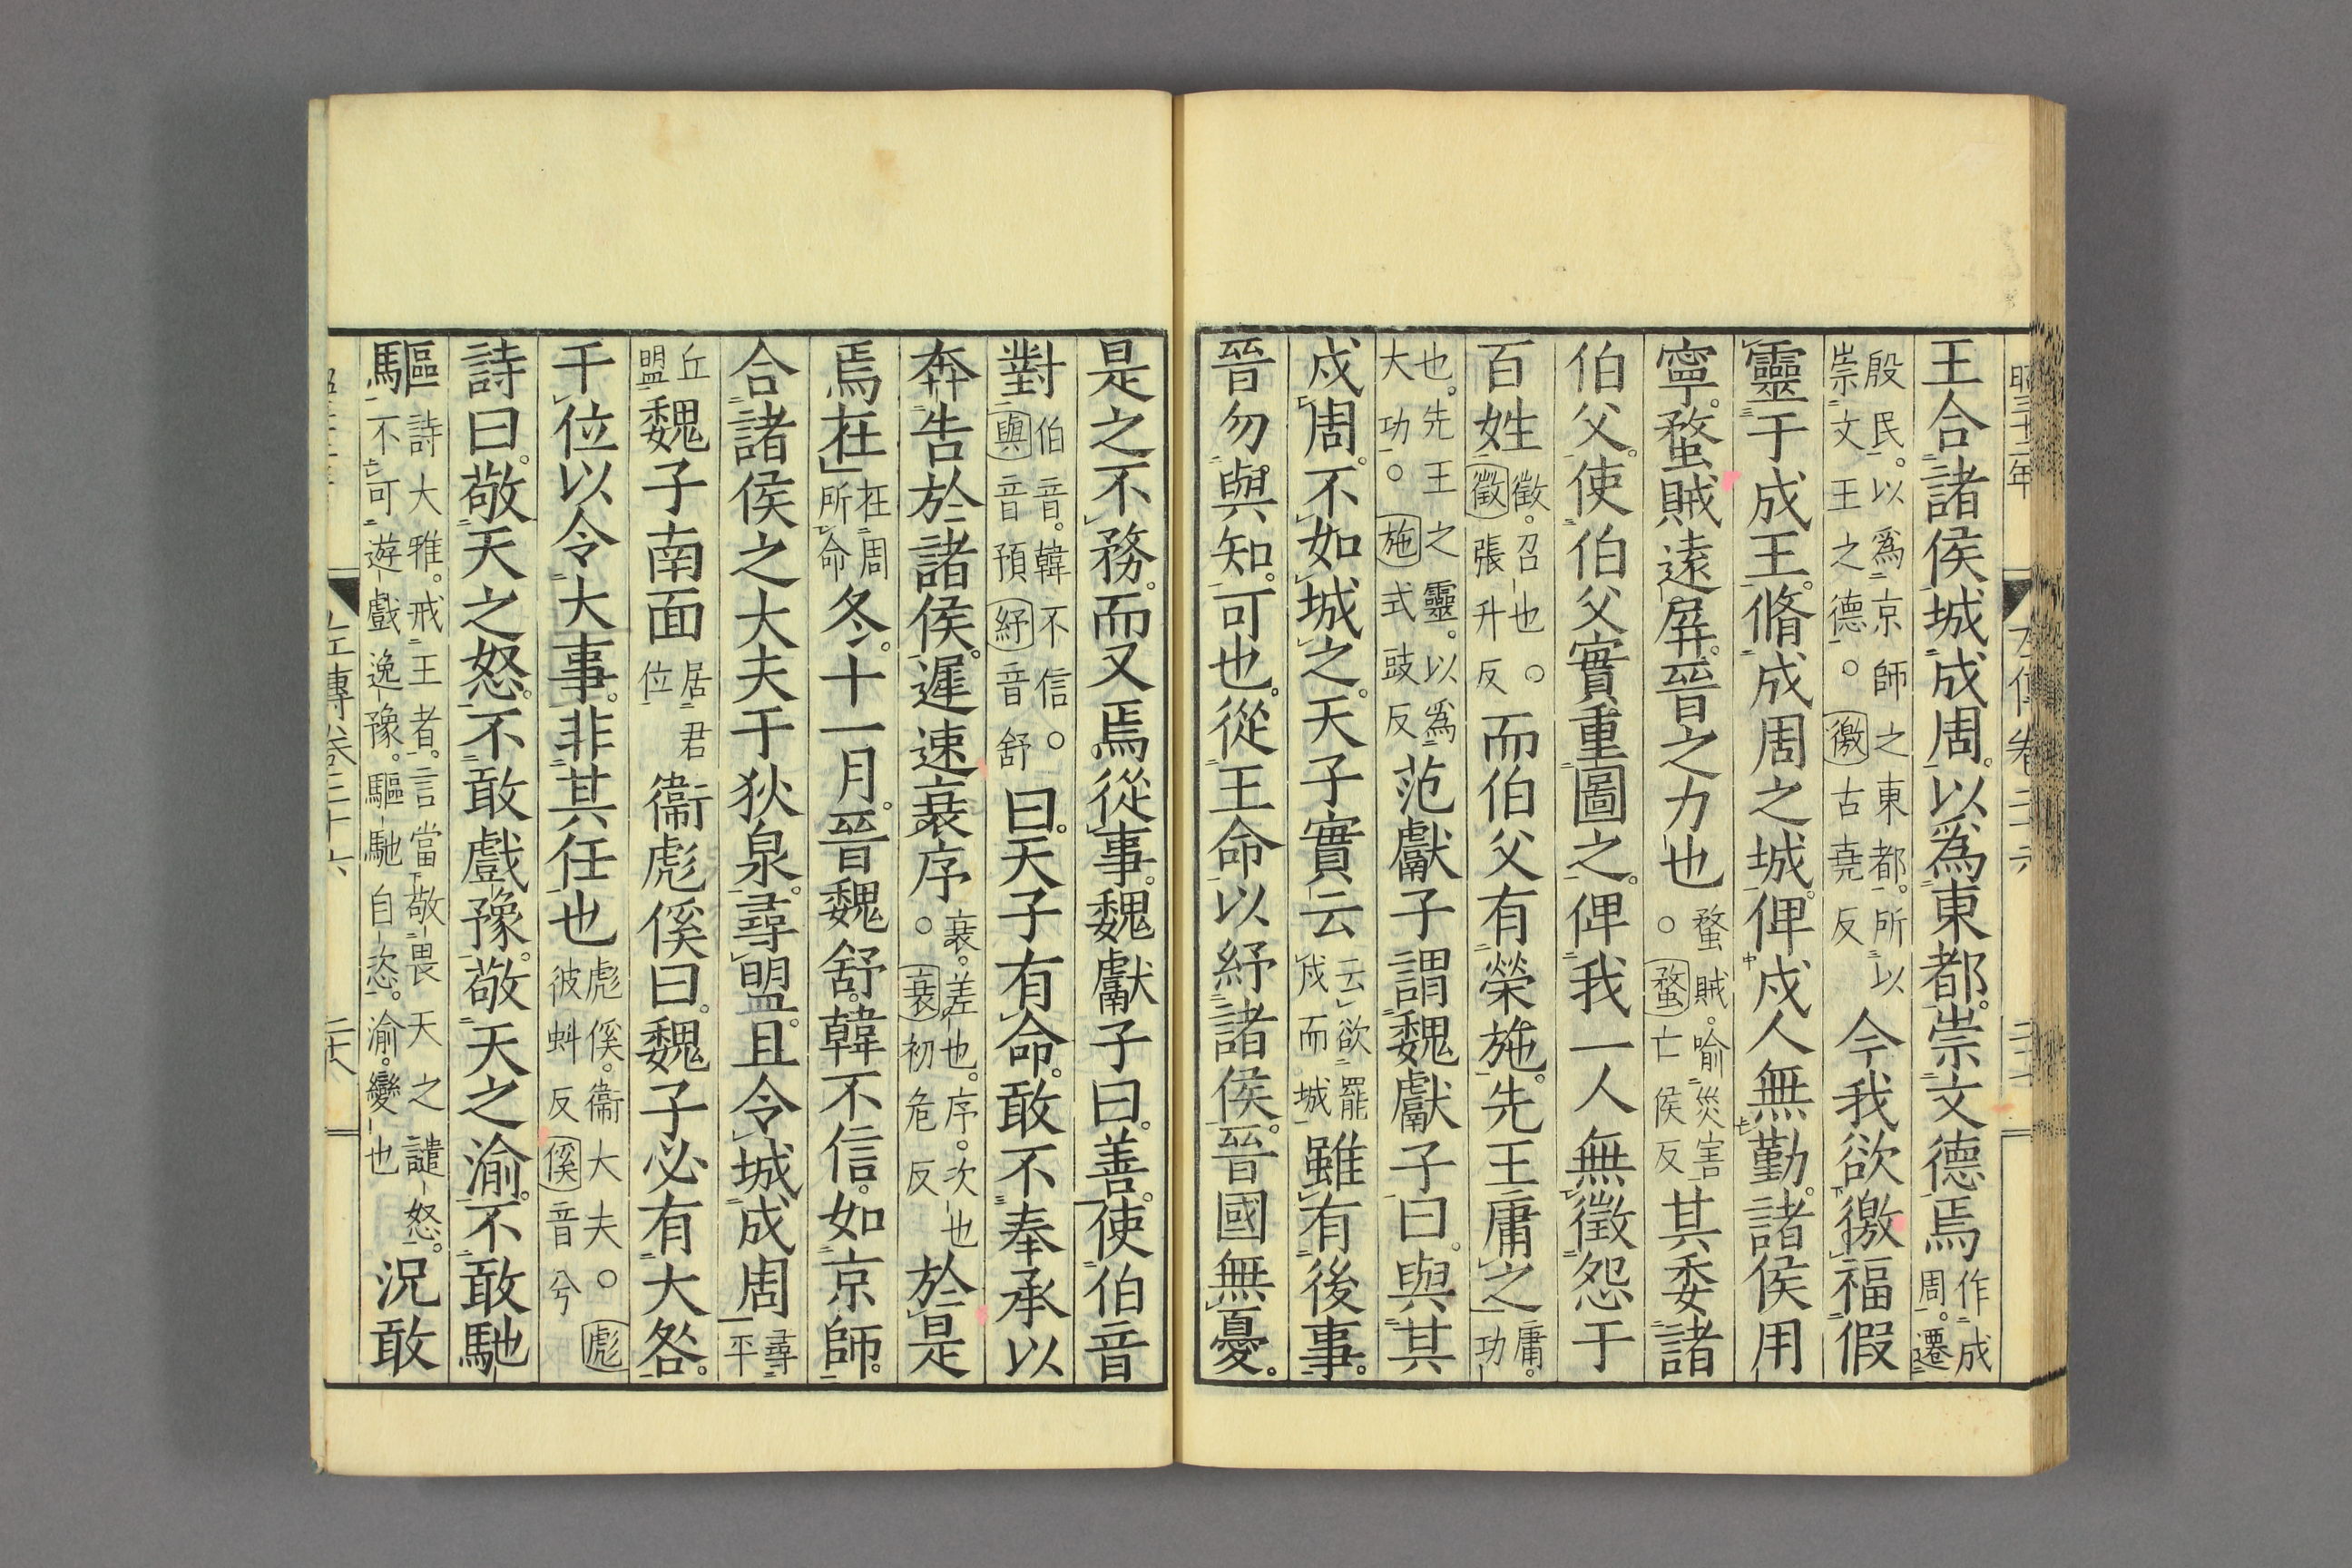 昭三十二年
王合諸侯城成周。以爲東都。崇文德焉作成周。遷
殷民。以爲京師之東都。所以崇文王之德。○徼古堯反今我欲徼福假
靈于成王。脩成周之城。俾戍人無勤。諸侯用
寧。蝥賊遠屏。晉之力也○蝥賊。喻災害蝥亡侯反其委諸
伯父。使伯父實重圖之。俾我一人無徵怨于
百姓徵。召也○徵張升反而伯父有榮施。先王庸之庸。功
也。先王之靈。以爲大功。○施式豉反范獻子謂魏獻子曰。與其
戍周。不如城之。天子實云云欲罷戍而城雖有後事。
晉勿與知。可也。從王命以紓諸侯。晉國無憂。
是之不務。而又焉從事。魏獻子曰。善。使伯音
對伯音。韓不信○與音預紓音舒曰。天子有命。敢不奉承以
奔告於諸侯。遲速衰序○衰。差也。序。次也衰初危反於是
焉在在周所命冬。十一月。晉魏舒。韓不信。如京師。
合諸侯之大夫于狄泉。尋盟。且令城成周尋平
丘盟魏子南面居君位衞彪傒曰。魏子必有大咎。
干位以令大事。非其任也彪傒。衞大夫○彪彼蚪反傒音兮
詩曰。敬天之怒。不敢戲豫。敬天之渝。不敢馳
驅詩大雅。戒王者。言當敬畏天之譴怒。不可遊戲逸豫。驅馳自恣。渝。變也況敢
左傳卷二十六